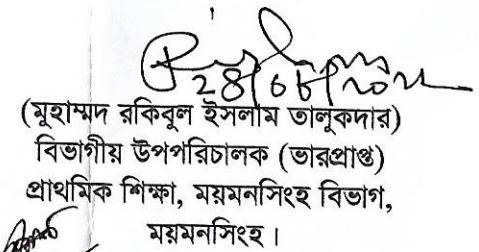 (মুহাম্মদ রকিবুল ইসলাম তালুকদার)
বিভাগীয় উপপরিচালক (ভারপ্রাপ্ত)
প্রাথমিক শিক্ষা, ময়মনসিংহ বিভাগ,
ময়মনসিংহ।